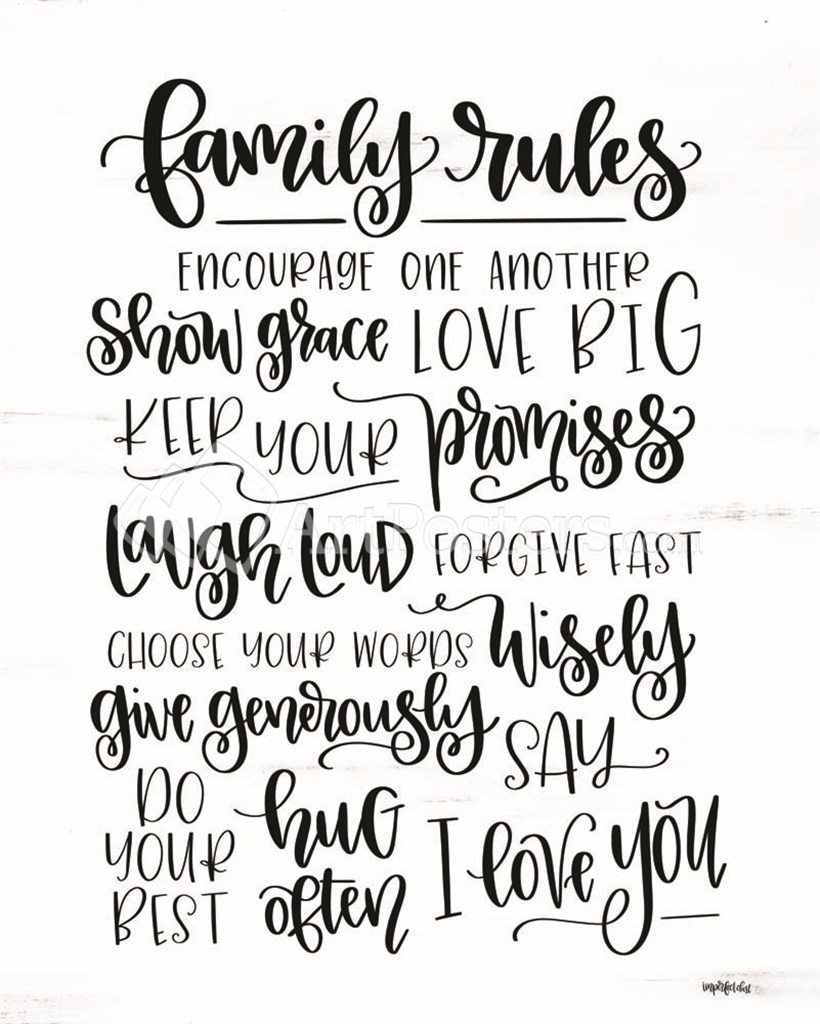 family rules
ENCOURAGE ONE ANOTHER
Show grace LOVE BIG
KEEP YOUR promises
Laugh Loud FORGIVE FAST
CHOOSE YOUR WORDS Wisely
give generously SAY
DO YOUR BEST
hug often
I love you
ArtPosters.com
imperfect dust